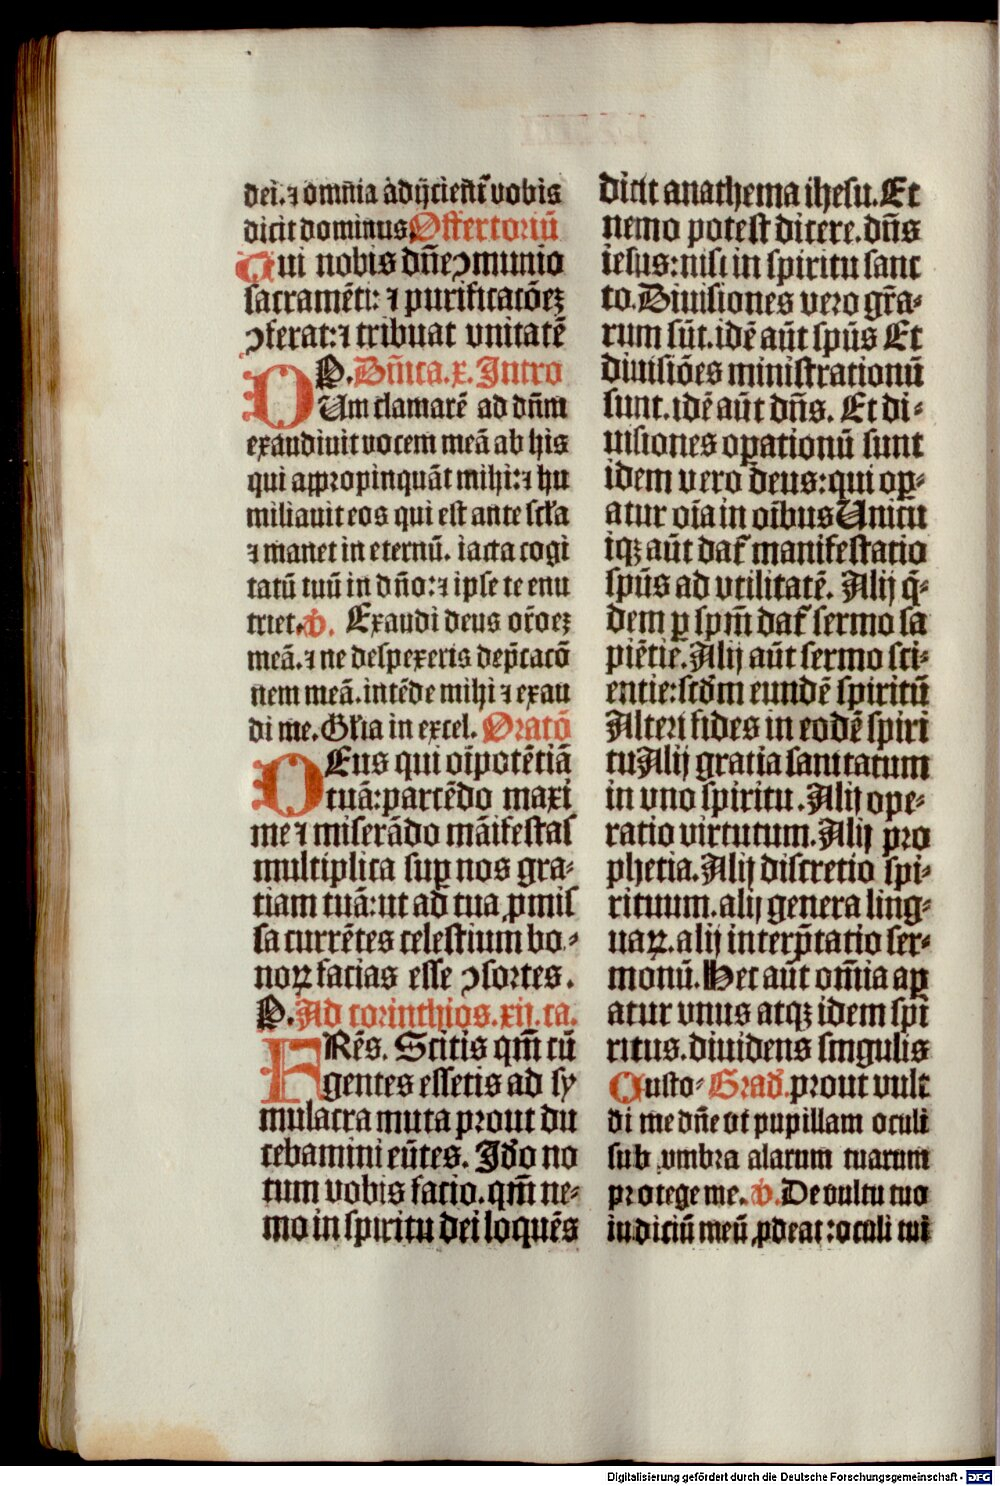 dei.⁊ om̄ia adijcient̄ vobis
dicit dominus. Offertoriū
Qui nobis dn̄e ꝯmunio
sacramēti: ⁊ purificatōeꝫ
ꝯferat: ⁊ tribuat vnitatē
P. Dn̄ica.x. Intro
DUm clamarē ad dn̄m
exaudiuit vocem meā ab his
qui appropinquāt mihi: ⁊ hu
miliauit eos qui est ante scl̄a
⁊ manet in eternū. iacta cogi
tatū tuū in dn̄o: ⁊ ipse te enu
triet. v. Exaudi deus or̄oeꝫ
meā. ⁊ ne despexeris dep̄cacō
nem meā. intēde mihi ⁊ exau
di me. Gl̄ia in excel. Oratō
DEus qui oīpotētiā
tuā: parcēdo maxi
me ⁊ miserādo māifestas
multiplica suꝑ nos gra⸗
tiam tuā: ut ad tua ꝓmis
sa currētes celestium bo⸗
noꝝ facias esse ꝯsortes.
P. Ad corinthios. xij. ca.
FRēs. Scitis qm̄ cū
gentes essetis ad sy
mulacra muta prout du
cebamini eūtes. Ido no
tum vobis facio. qm̄ ne⸗
mo in spiritu dei loquēs
dicit anathema ihesu. Et
nemo potest dicere. dn̄s
iesus: nisi in spiritu sanc
to. Diuisiones vero gr̄a⸗
rum sūt. idē aūt sp̄us Et
diuisiōes ministrationū
sunt. idē aūt dn̄s. Et di⸗
uisiones oꝑationū sunt
idem vero deus: qui oꝑ⸗
atur oīa in oībus Unicu
iqꝫ aūt dat̄ manifestatio
sp̄us ad vtilitatē. Alij q̄⸗
dem ꝑ sp̄m dat̄ sermo sa
piētie. Alij aūt sermo sci⸗
entie: scd̄m eundē spiritū
Alteri fides in eodē spiri
tu Alij gratia sanitatum
in vno spiritu. Alij ope⸗
ratio virtutum. Alij pro
phetia. Alij discretio spi⸗
rituum. alij genera ling⸗
uaꝝ. alij interp̄tatio ser⸗
monū. Hec aūt om̄ia oꝑ
atur vnus atqꝫ idem spi
ritus. diuidens singulis
Custo⸗ Grad̄. prout vult
di me dn̄e vt pupillam oculi
sub vmbra alarum tuarum
protege me. v. De vultu tuo
iudiciū meū ꝓdeat: oculi tui
Digitalisierung gefördert durch die Deutsche Forschungsgemeinschaft - DFG